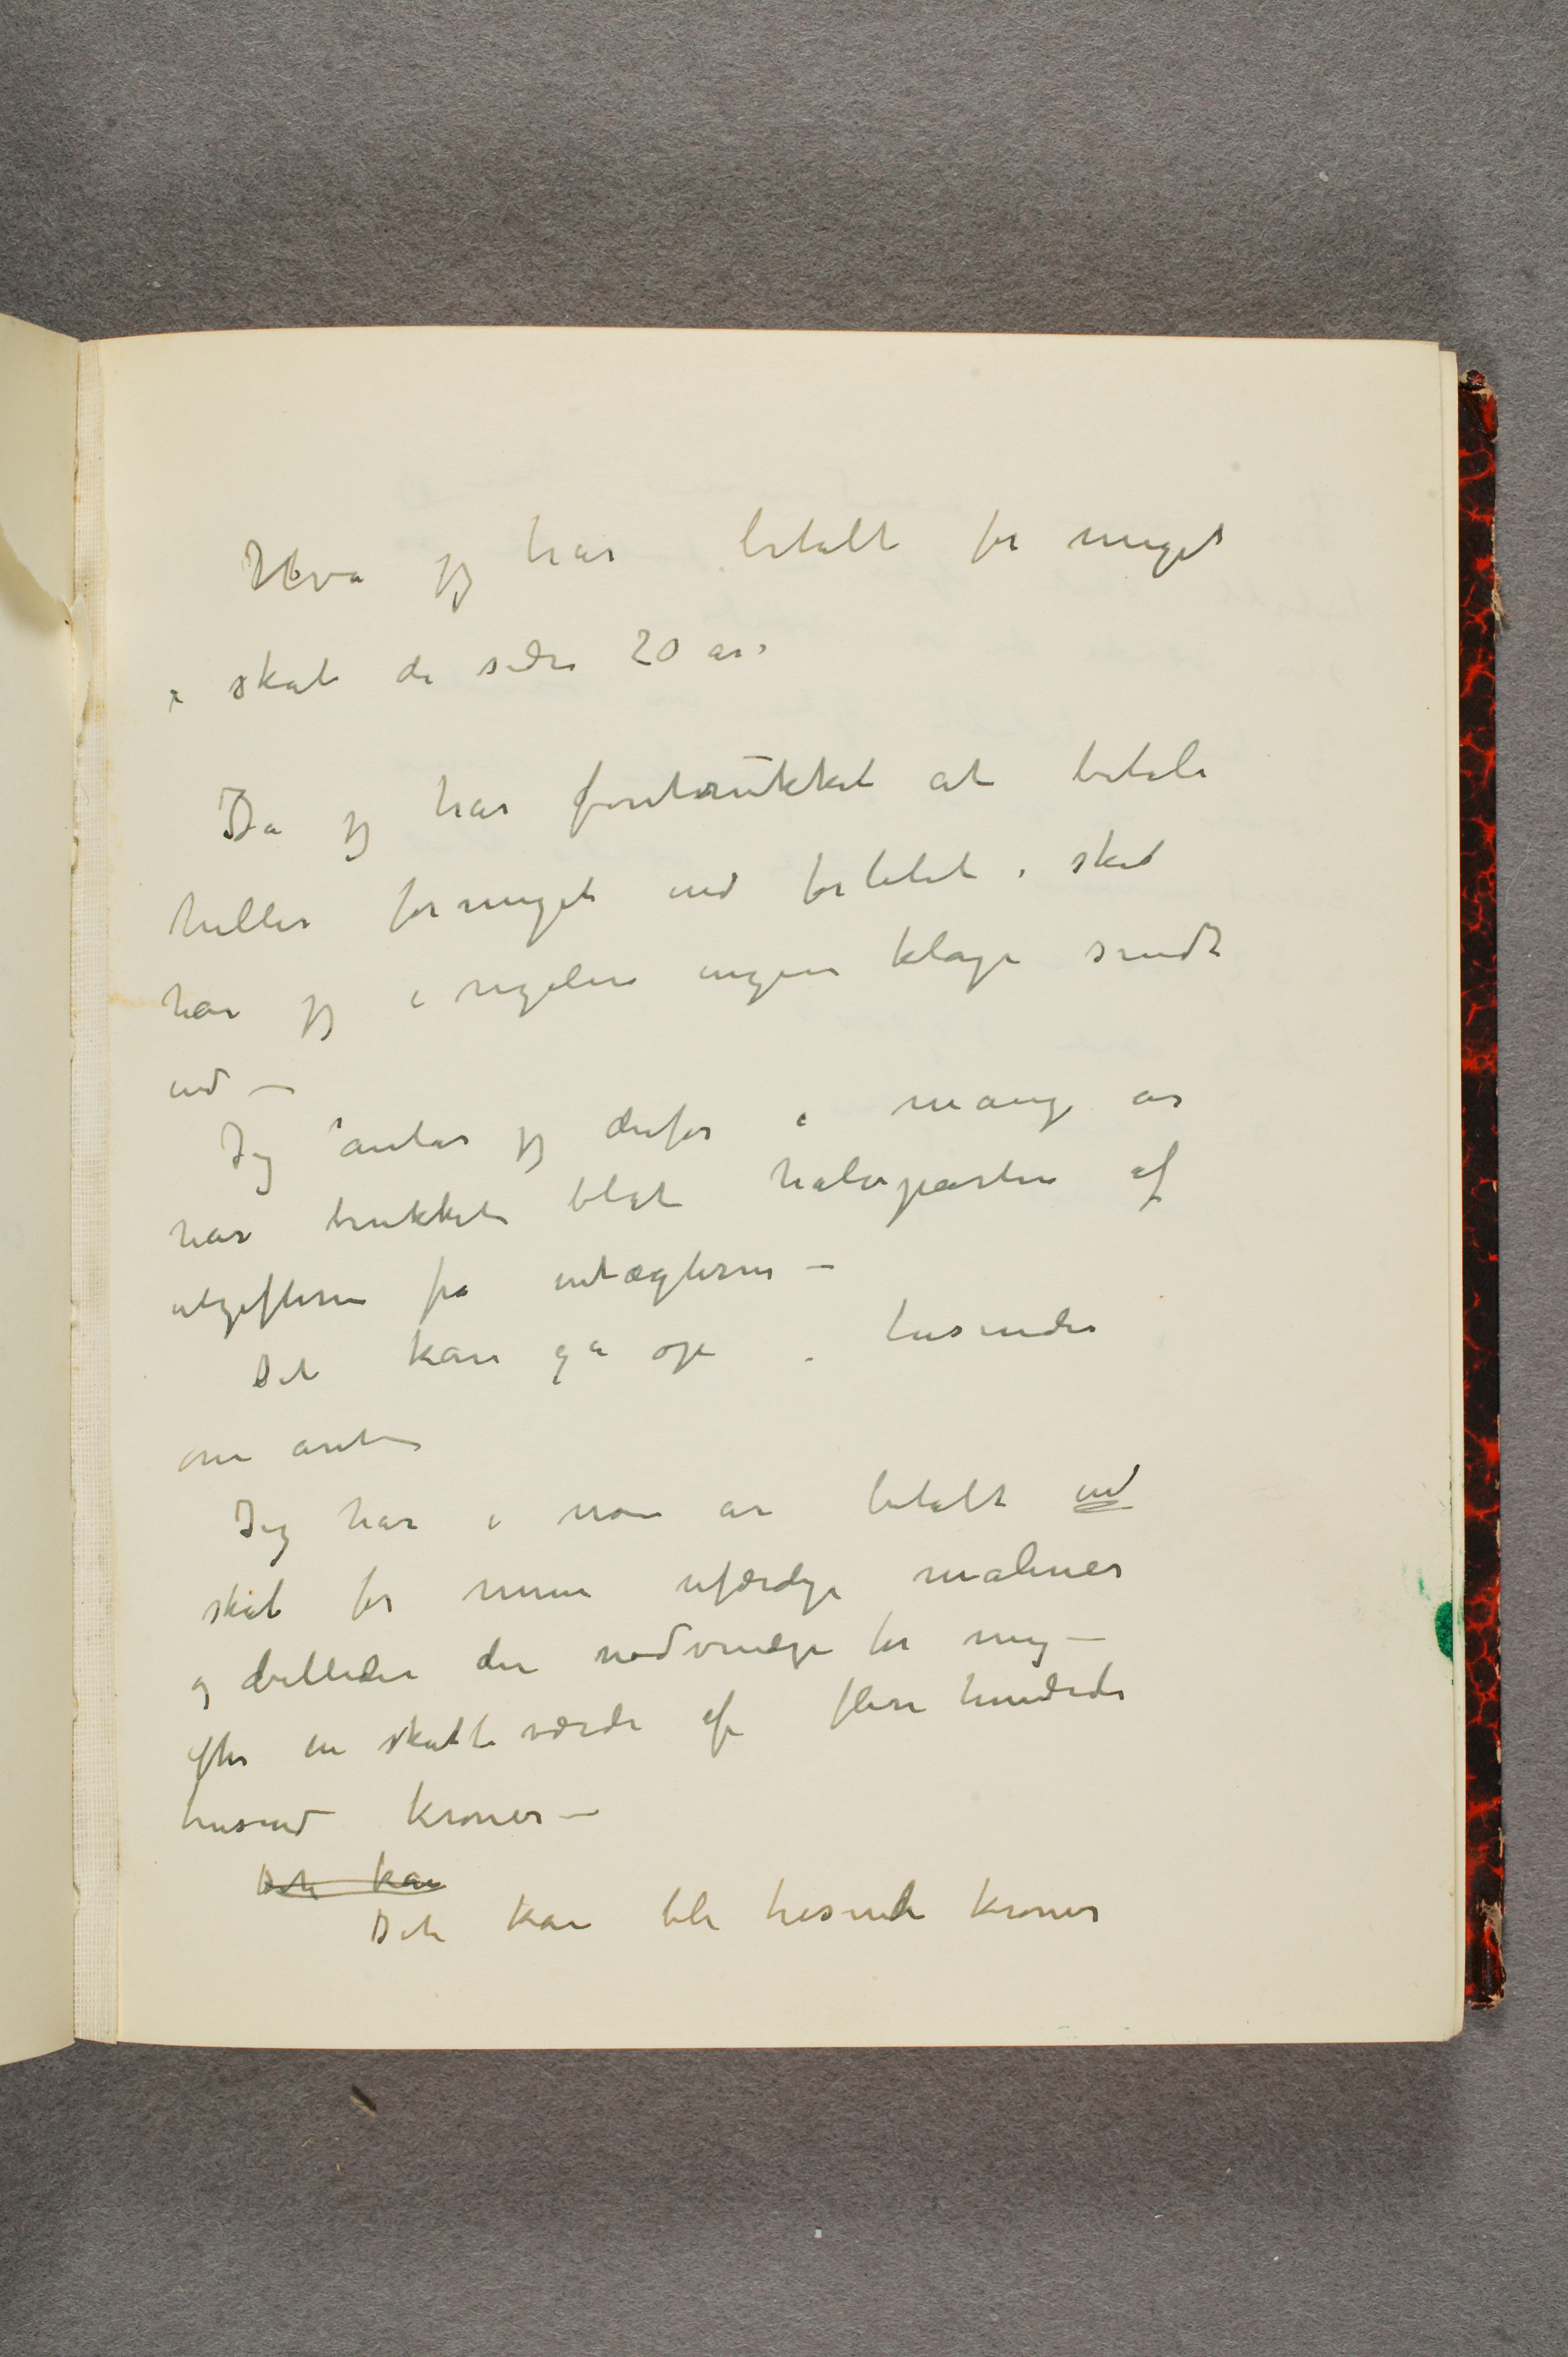 Hva jeg har betalt for meget
i skat de sidre 20 år.
Da jeg har foretrukket at betale
heller for meget end forlidet i skat
har jeg i regelen ingen klage sendt
ind –
Jeg antar jeg derfor i mange år
har trukket blot halvparten af
utgifterne fra indtægterne –
Det kan gå op i tusinder
om året
Jeg har i noen år betalt ind
skat for mine ufærdige malerier
og billeder der nødvendige for mig –
efter en skatteværdi af flere hundrede
tusind kroner –
Det kan
Det kan bli tusinde kroner